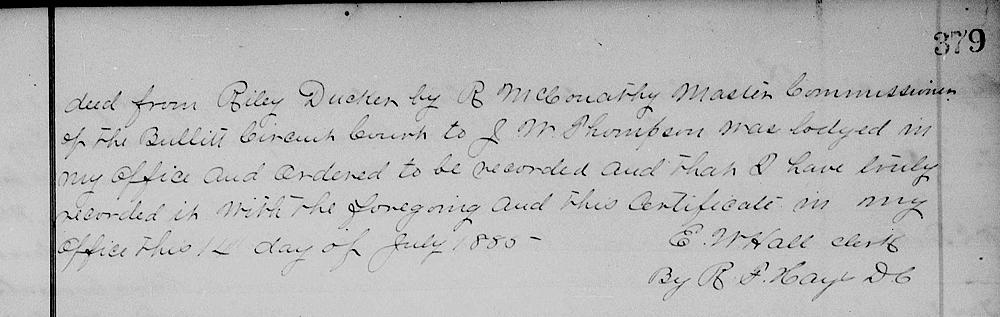 379
deed from Riley Ducker by R McConathy Master Commissioner
of the Bullitt Circuit Court to J W Thompson was lodged in
my office and ordered to be recorded and that I have truly
recorded it with the foregoing and this Certificate in my
office this day of July 1885
E. W Hall clerk
By R. F. Hays D.C